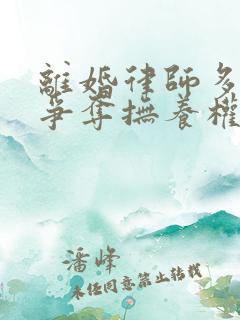 離婚律師多
爭奪撫養權
潘峰
未任同意禁止轉載